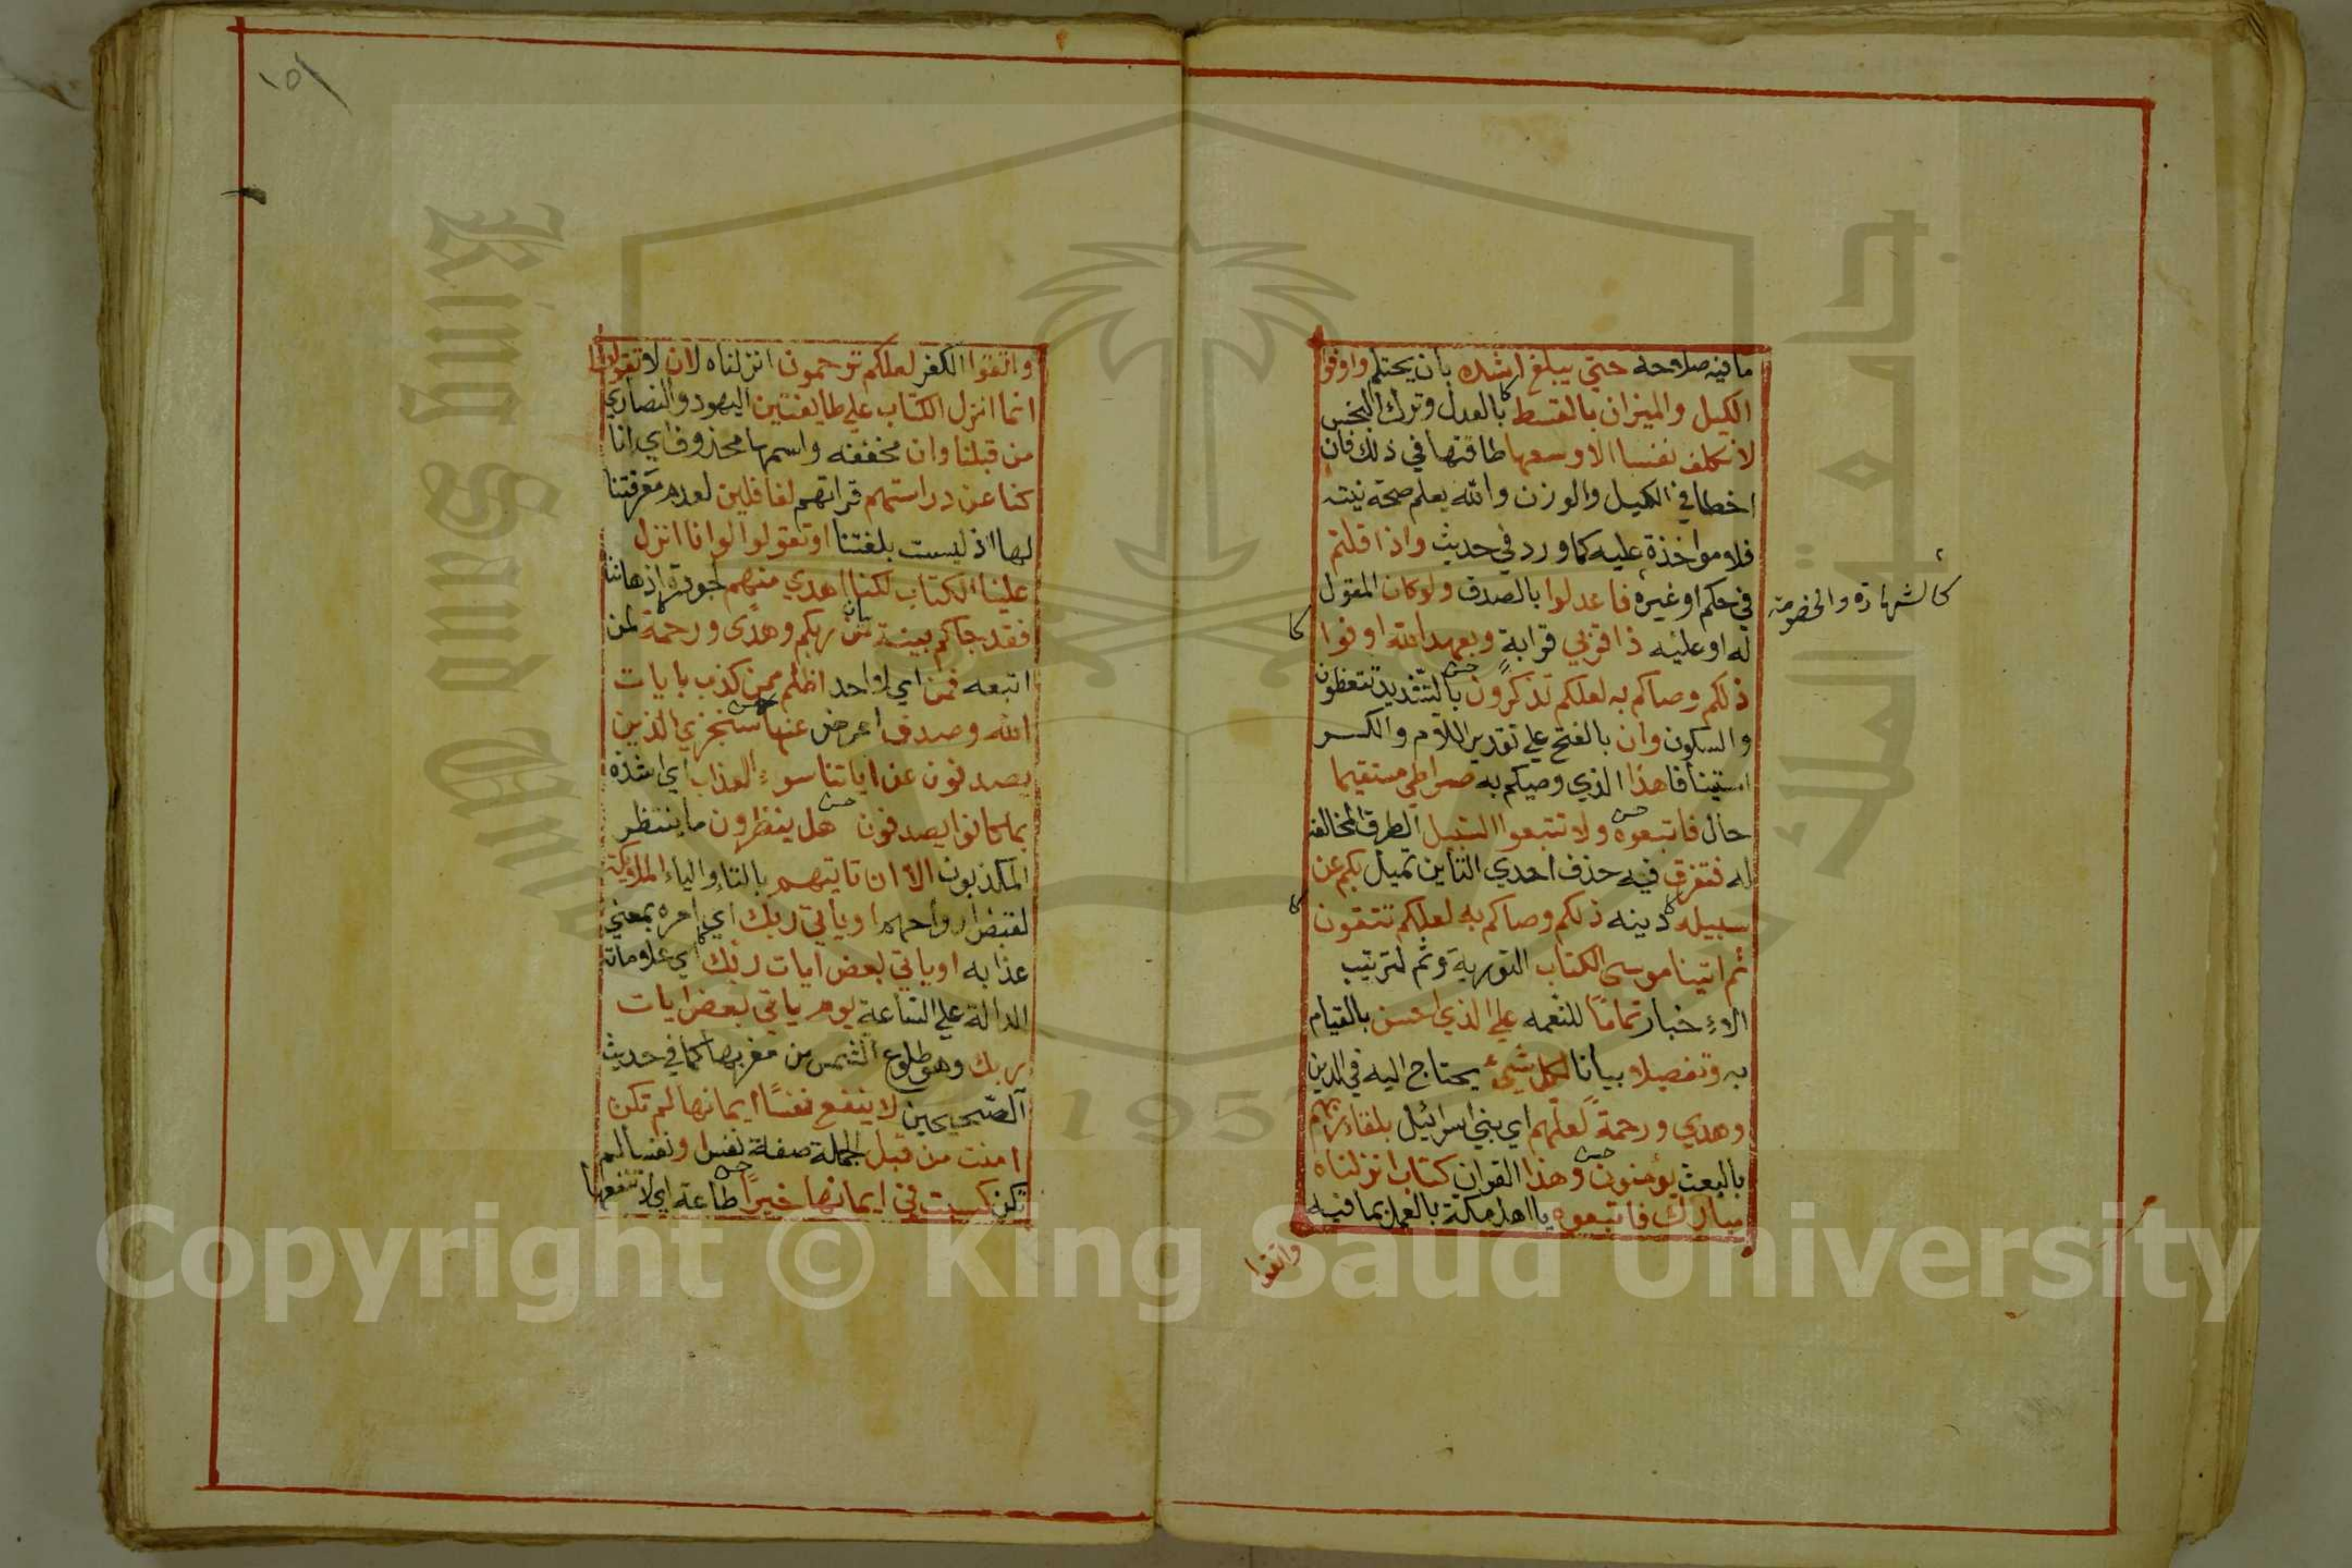 ما فيه صلاحه حتي يبلغ اشده بان يحتلم واوفوا
الكيل والميزان بالقسط بالعدل وترك البخس
لا نكلف نفسا الا وسعها طاقتها في ذلك فان
اخطا في الكيل والوزن والله يعلم صحة نيته
فلا مواخذة عليه كما ورد في حديث واذا قلتم
في حكم او غيره فاعدلوا بالصدق ولو كان المقول
كالشهادة والخصومة
له او عليه ذا قربي قرابة وبعهد الله اوفوا
ذلكم وصاكم به لعلكم تذكرون بالتشديد تتعظون
والسكون وان بالفتح علي تقدير اللام والكسر
استينافا هذا الذي وصيكم به صراطي مستقيما
حال فاتبعوه ولا تتبعوا السبل الطرق المخالفة
له فتفرق فيه حذف احدي التاين تميل بكم عن
سبيله دينه ذلكم وصاكم به لعلكم تتقون
ثم اتينا موسي الكتاب التورية وثم لترتيب
الاخبار تماما للنعمه علي الذي احسن بالقيام
به وتفصيلا بيانا لكل شيء يحتاج اليه في الدين
وهدي ورحمة لعلهم اي بني اسرائيل بلقاء ربهم
بالبعث يؤمنون وهذا القران كتاب انزلناه
مبارك فاتبعوه يا اهل مكة بالعمل بما فيه
واتقوا
١٥١
واتقوا الكفر لعلكم ترحمون انزلناه لان لا تقولوا
انما انزل الكتاب علي طايفتين اليهود والنصاري
من قبلنا وان مخففه واسمها محذوف اي انا
كنا عن دراستهم قراتهم لغافلين لعدم معرفتنا
لها اذ ليست بلغتنا او تقولوا لو انا انزل
علينا الكتاب لكنا اهدي منهم لجودة اذهاننا
فقد جاكم بينة بيان من ربكم وهدى ورحمة لمن
اتبعه فمن اي لا احد اظلم ممن كذب بايات
الله وصدف اعرض عنها سنجزي الذين
يصدفون عن اياتنا سوء العذاب اي اشده
بما كانوا يصدفون هل ينظرون ما ينتظر
المكذبون الا ان تاتيهم بالتاء والياء الملائكة
لقبض ارواحهم او يأتي ربك اي امره بمعني
عذابه او ياتي بعض ايات ربك اي علاماته
الدالة علي الساعة يوم ياتي بعض ايات
ربك وهو طلوع الشمس من مغربها كما في حديث
الصحيحين لا ينفع نفسا ايمانها لم تكن
امنت من قبل الجملة صفة نفس ونفسا لم
تكن كسبت في ايمانها خيرا طاعة اي لا تنفعها
Copyright © King Saud University
King Saud Un
جامعة الملك
195